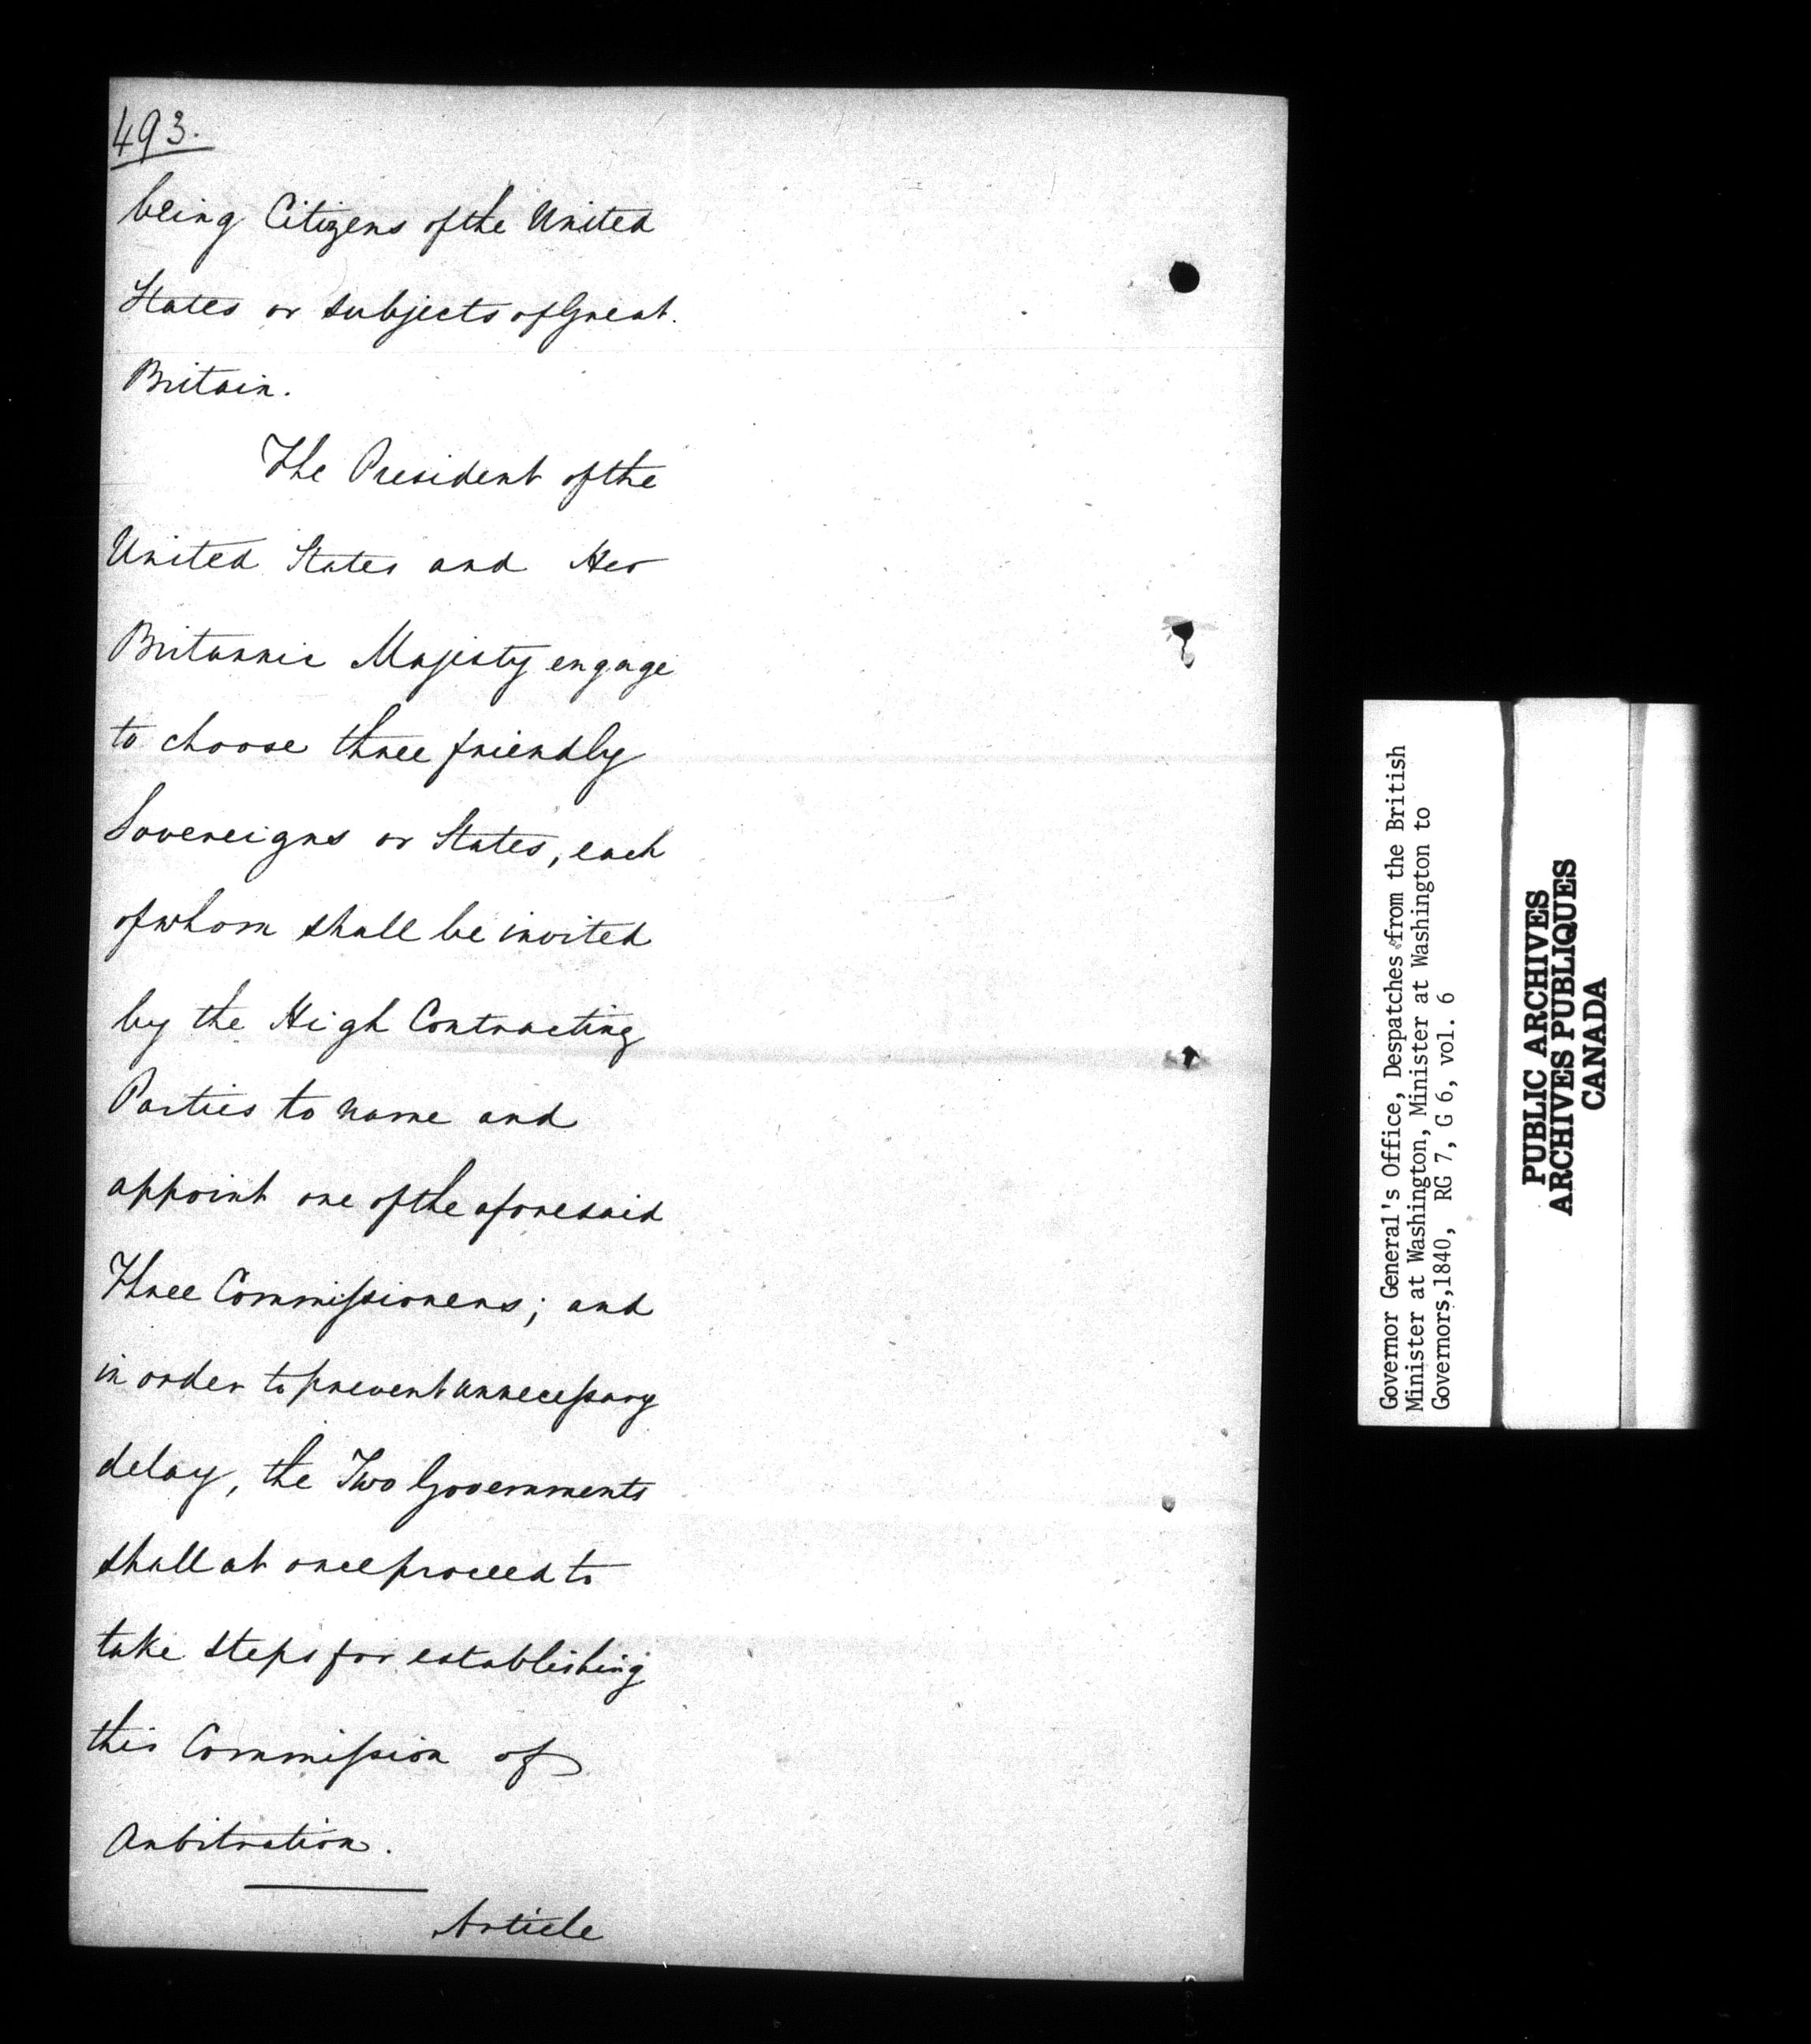 493.
being Citizens of the United
States or subjects of Great
Britain.
The President of the
United States and Her
Britannic Majesty engage
to choose three friendly
Sovereigns or States, each
of whom shall be invited
by the High Contracting
Parties to name and
appoint one of the aforesaid
Three Commissioners; and
in order to prevent unnecessary
delay, the Two Governments
shall at once proceed to
take steps for establishing
this Commission of
Arbitration.
Article
Governor General's Office, Despatches from the British
Minister at Washington, Minister at Washington to
Governors,1840, RG 7, G 6, vol. 6
PUBLIC ARCHIVES
ARCHIVES PUBLIQUES
CANADA